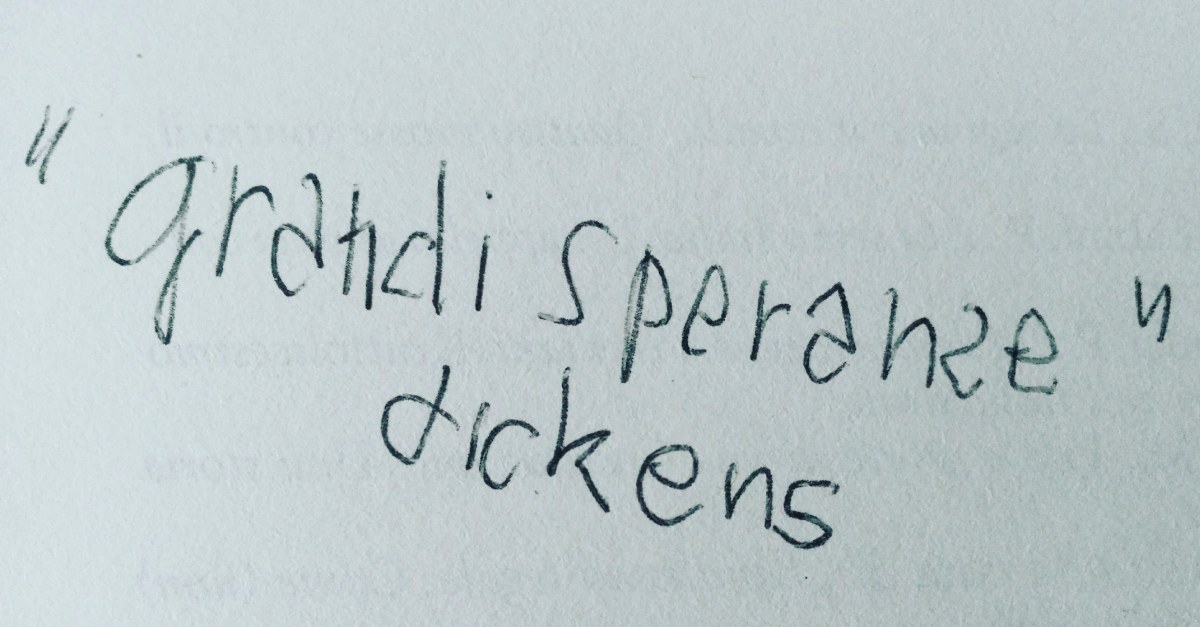 "grandi speranze"
dickens